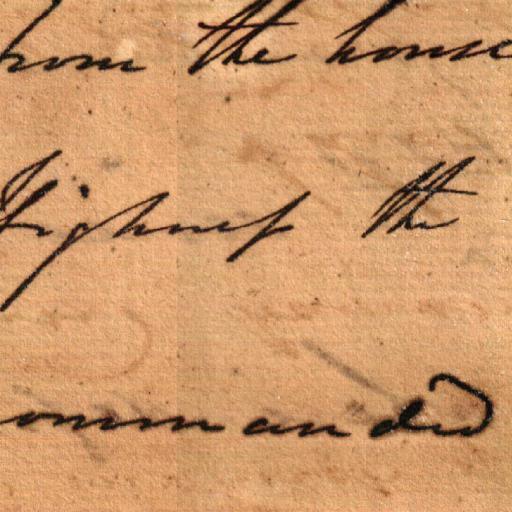 from the house
Highness the
commanded